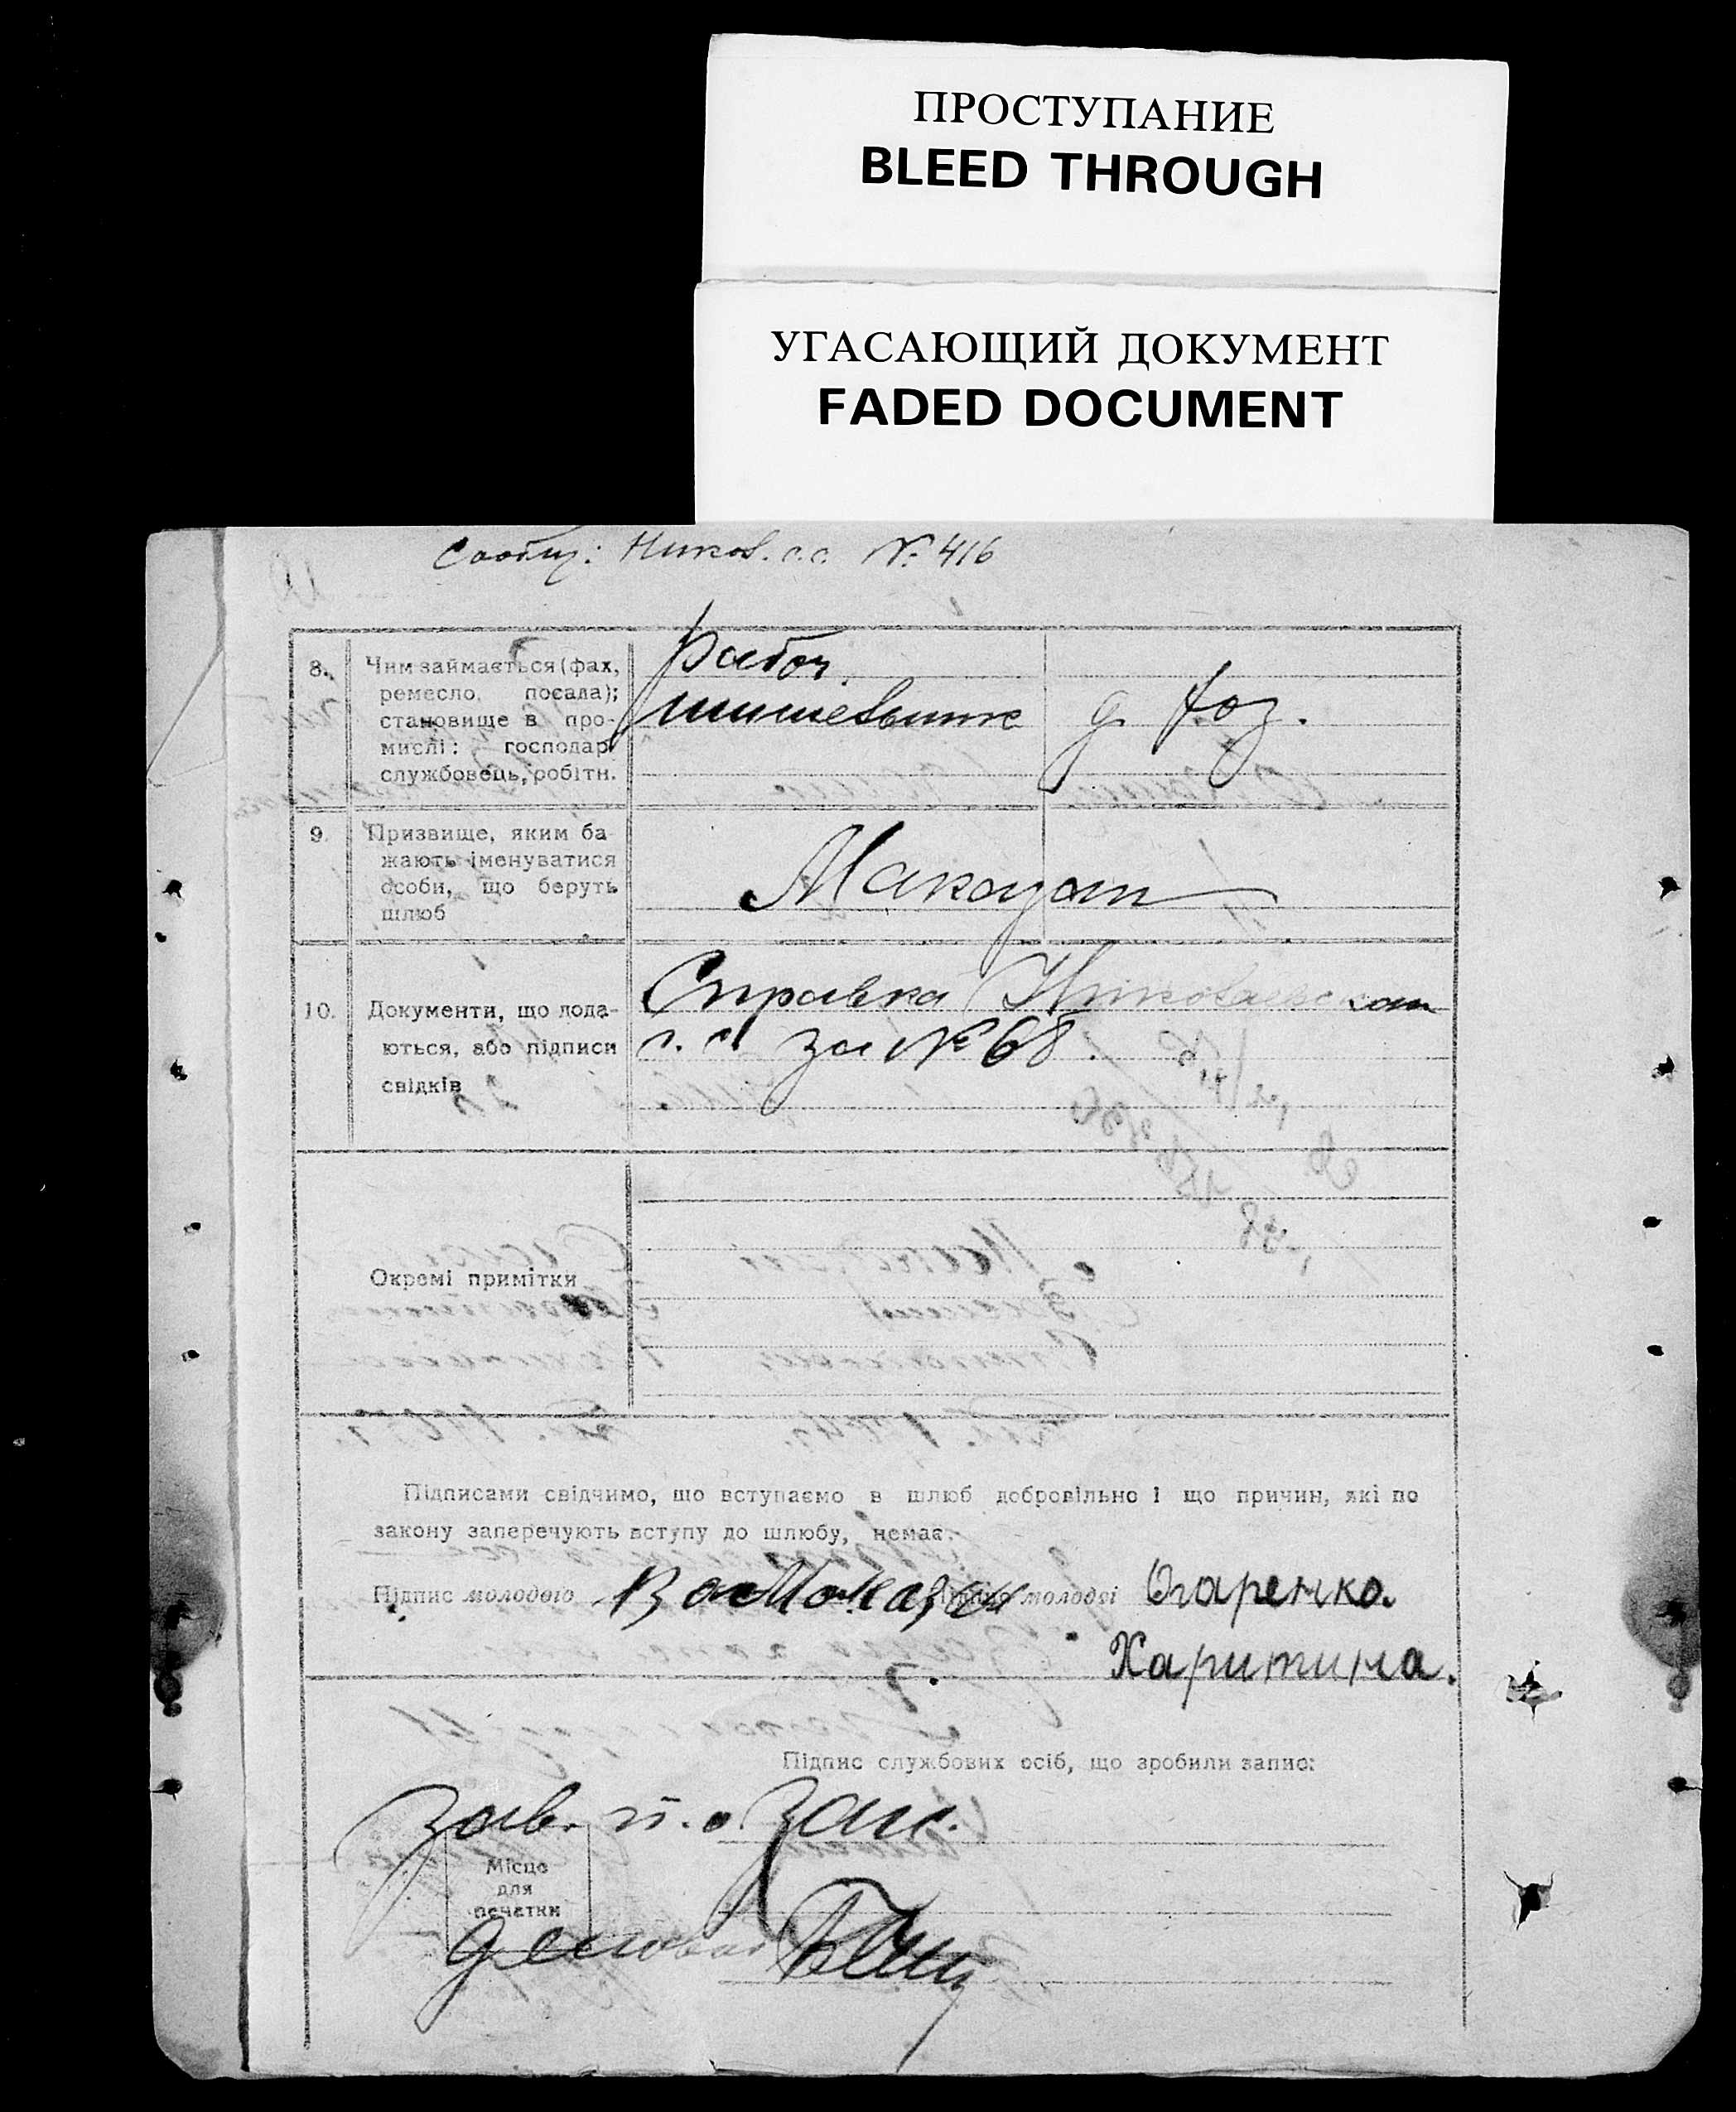 ПРОСТУПАНИЕ
BLEED THROUGH
УГАСАЮЩИЙ ДОКУМЕНТ
FADED DOCUMENT
Сообщ: Никол. с.с. № 416
8. Чим займається (фах,
ремесло, посада);
становище в про-
мислі: господар,
службовець, робітн.
рабоч.
д. хоз.
9. Призвище, яким ба-
жають іменуватися
особи, що беруть
шлюб
10. Документи, що пода-
ються, або підписи
свідків
Справка Николаевской
с. с. за № 68.
Окремі примітки
Підписами свідчимо, що вступаємо в шлюб добровільно і що причин, які по
закону заперечують вступу до шлюбу, немає.
Підпис молодого
молодої Огаренко.
Харитина.
Підпис службових осіб, що зробили запис:
Зав.
Місце
для
печатки